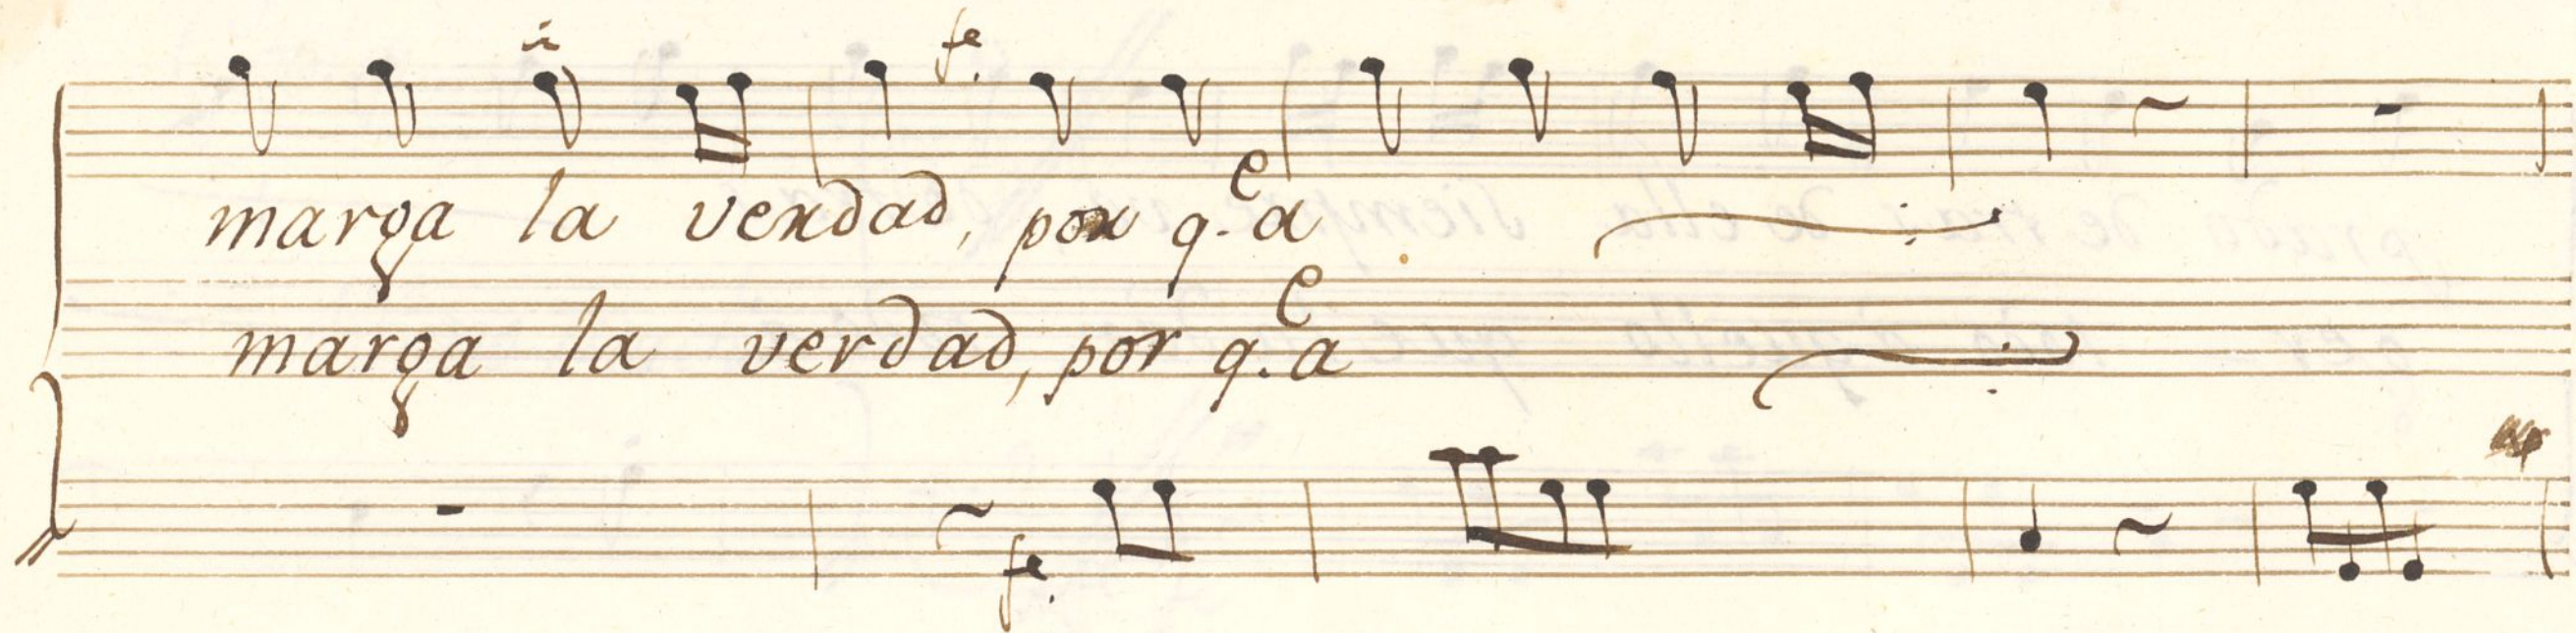 fe.
marga la verdad, por q.e a
marga la verdad, por q.e a
fe.